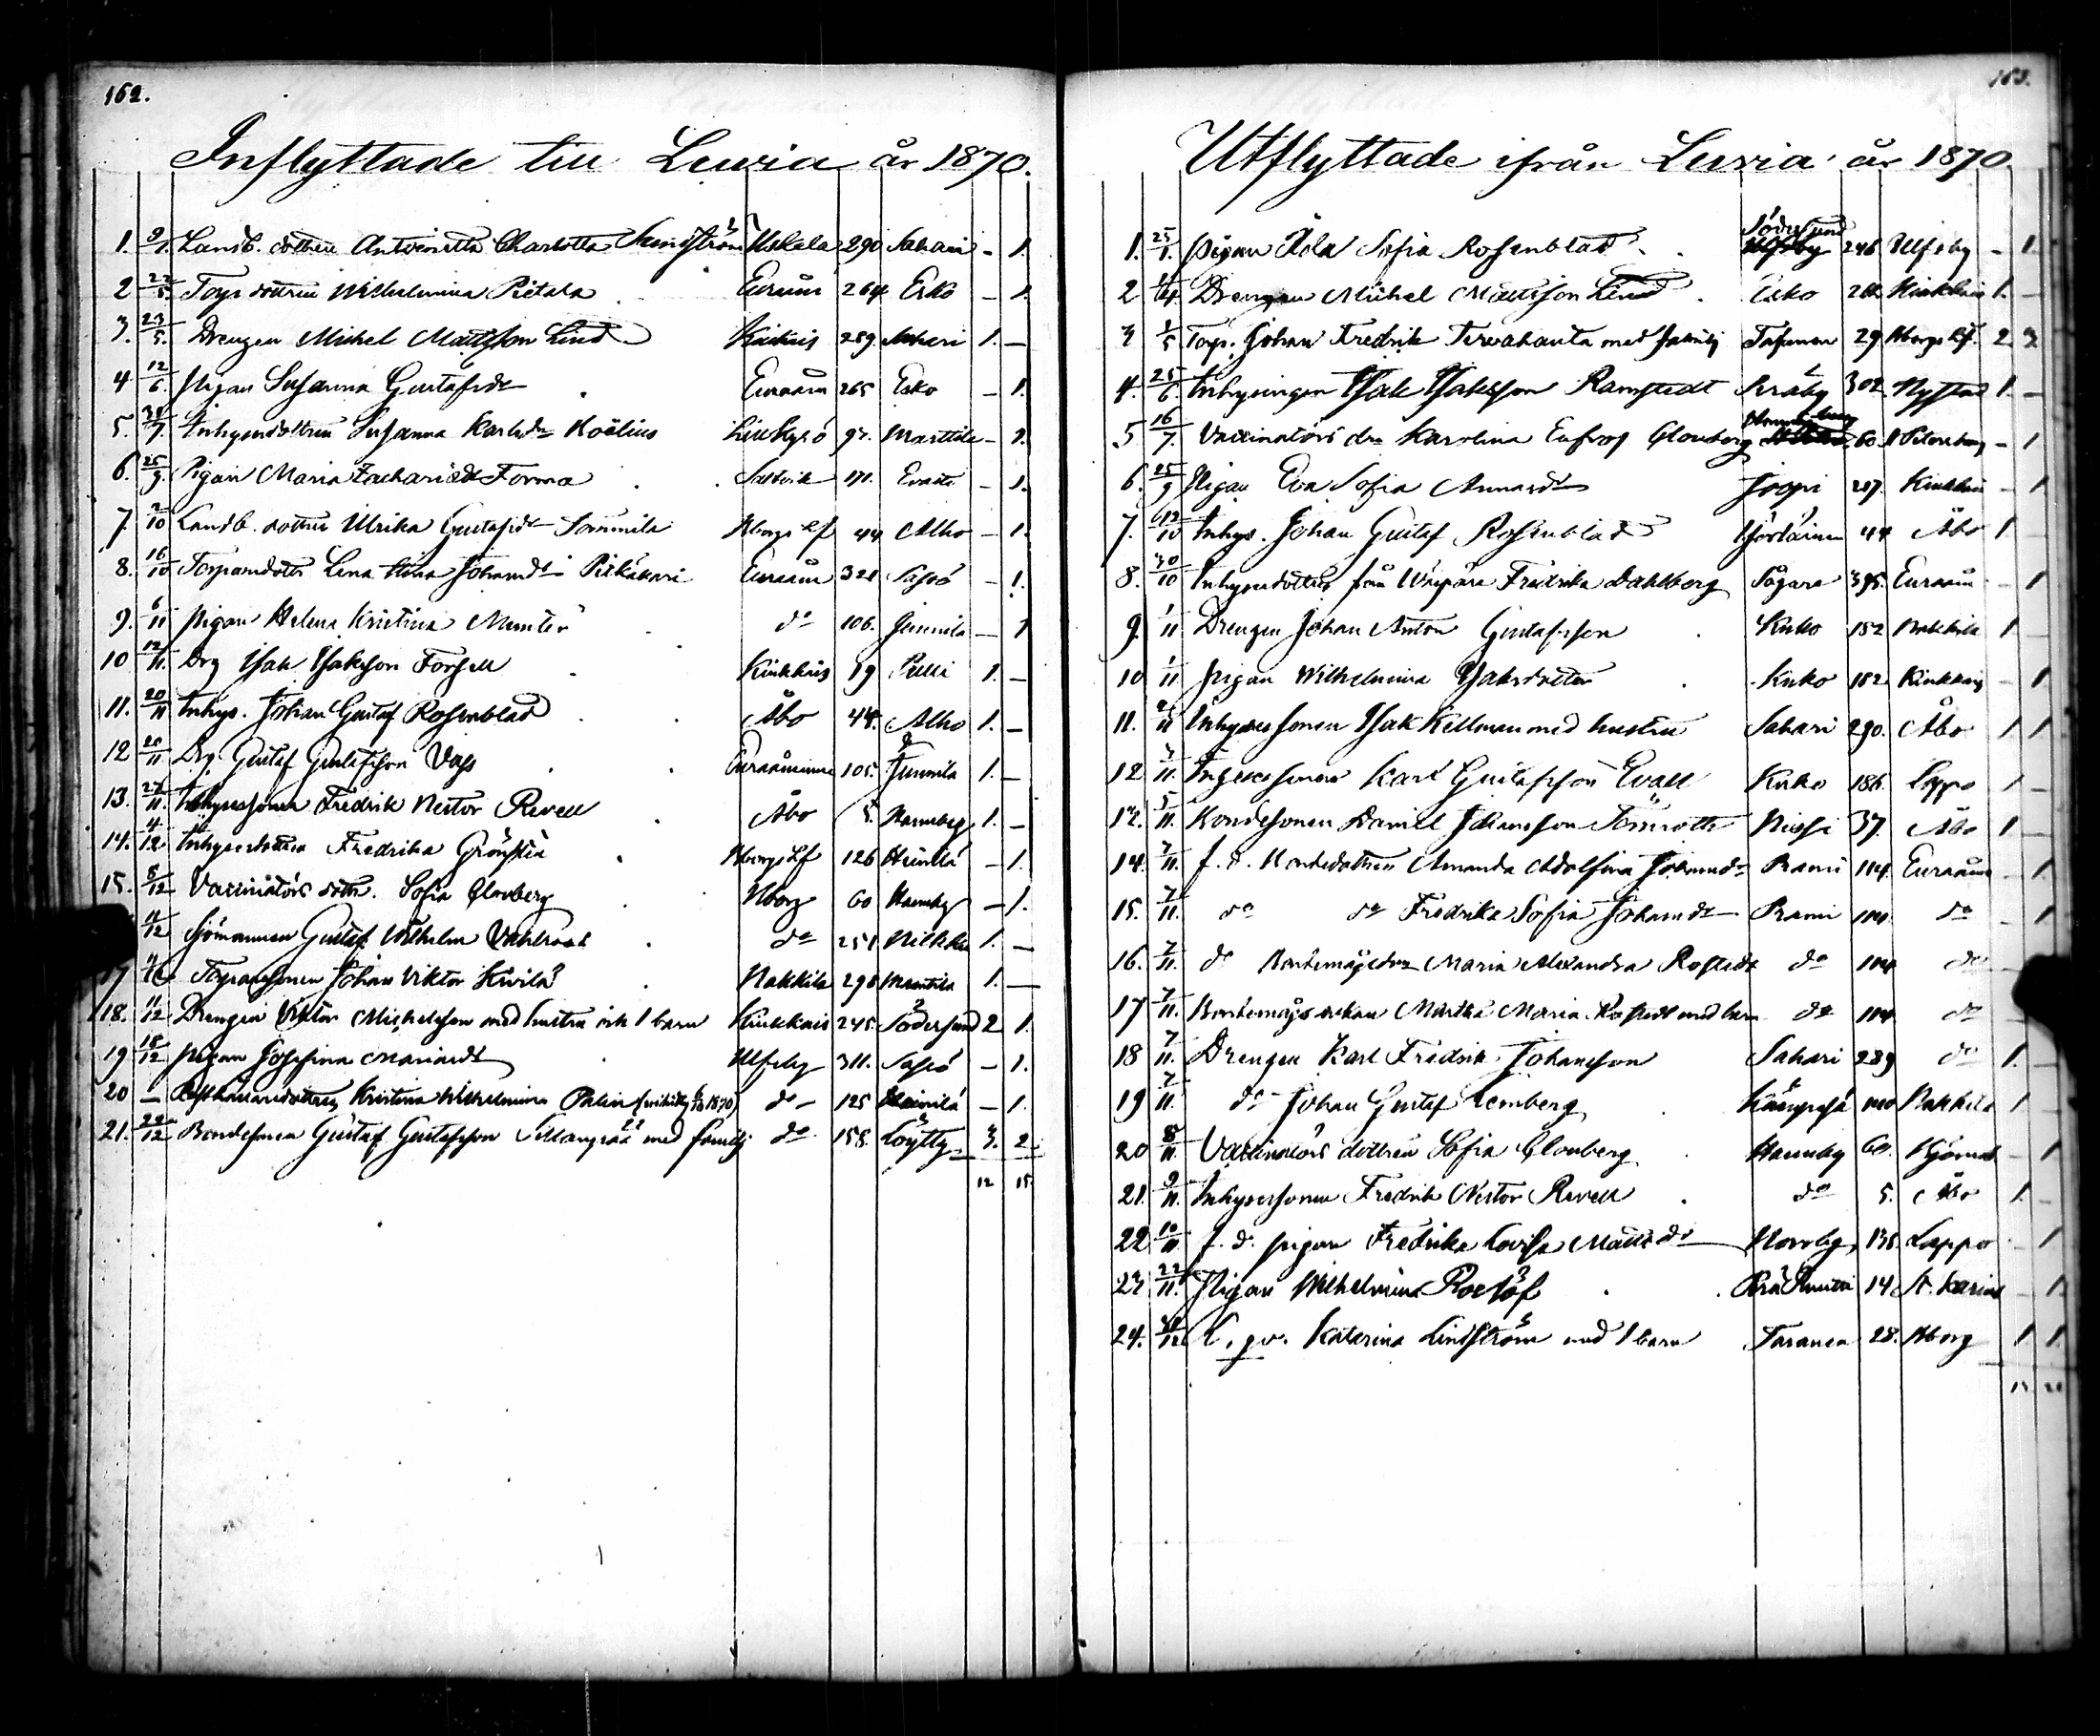 162.
Inflyttade till Luvia år 1870.
1. 9/1. Landb. dottren Antoinetta Charlotta Sundström Uskala 290 Sahari - 1.
2 22/5. Torp dottren Wilhelmina Pietala Euraåm 264 Esko - 1.
3. 23/5. Drengen Michel Mattsson Lind Kiukais 289. Sahari 1. -
4 12/6. Pigan Susanna Gustafsdr Euraåm 265 Esko - 1.
5. /7. Inhysesdottren Susanna Karlsdr Koëlius 97. Marttila - 1.
6. 25/9. Pigan Maria Zachariedr Forma Saltvik 171. - 1.
7 2/10 Landb. dottren Ulrika Gustafsdr Sommila Nborgs Lf 44 Alho - 1.
8. 16/10 Torparedottr Lena Johansdr Pitkäkari Euraåm 321 Sassö - 1.
9. 6/11 Pigan Helena Kristina Munter do 106. Junnila - 1
10 12/11. Drg Isak Isaksson Forsell Kiukkais 19 Pelli 1. -
11. 20/11 Inhys. Johan Gustaf Rosenblad Åbo 44. Alho 1. -
12 20/11 Drg. Gustaf Gustafsson Vass Euraåminne 105. Junnila 1. -
13. 27/11. Inhysessonen Fredrik Nestor Revell Åbo 5. Hannuby 1. -
14. 4/12 Inhysesdottren Fredrika Grönstén Nborgs Lf 126 Heinilä - 1.
15. 8/12 Vaccinatörs dottr. Sofia Glouberg Nborg 60 Hannuby - 1.
11/12 Sjömannen Gustaf Wilhelm Vahlroot do 251 1. -
17 Torparesonen Johan Viktor Kivilä Nakkila 298 Marttila 1. -
18. 11/12 Drengen Viktor Michelsson med hustru och 1 barn Kiukkais 245. Södersund 2 1.
19 18/12 Pigan Josefina Mariaedr Ulfsby 311. Sassö - 1.
20 - Kristina Wilhelmina Palin do - 125 Heinilä - 1.
21. 22/12 Bondesonen Gustaf Gustafsson Sillanpää med familj do 158. Löytty 3. 2
12 15.
163.
Utflyttade ifrån Luvia år 1870.
1. 25/1. Pigan Ada Sofia Rosenblad Södersund 246 Ulfsby - 1.
2 /4. Drengen Michel Mattsson Lind Esko 1. -
3 1/5 Torp. Johan Fredrik Tervahauta med familj 29 Nborgs Lf. 2 3
4. 25/6. Inhysingen Isak Isaksson Ramstedt Kråby 302. Nystad 1. -
5 16/7. Vaccinatörs dr Karolina Eufros Glouberg 60. St Petersburg - 1
6. 25/9 Pigan Eva Sofia Annaedr Joopi 217. Kiukkais - 1
7. /10 Inhys. Johan Gustaf Rosenblad 44 Åbo 1 -
8. 30/10 Inhysesdottren Fredrika Dahlberg Sågare 395. Euraåm - 1
9. 1/11 Drengen Johan Anton Gustafsson Kuko 182 Nakkila 1 -
10 1/11 Pigan Wilhelmina Isaksdotter Kuko 182 Kiukkais - 1
11. /11 Inhysessonen Isak Kellman med hustru Sahari 290. Åbo 1 1
12 3/11. Inhysessonen Karl Gustafsson Evall Kuko 186. Loppo 1 -
13. 5/11. Bondesonen Daniel Johansson Tömroth Niessi 37. Åbo 1 -
14. 7/11. f. d. Bondedottren Amanda Adolfina Johansdr Rami 114. Euraåm - 1
15. 7/11. do do Fredrika Sofia Johansdr Rami 114. do - 1
16. 7/11. do Bondemågsdrn Maria Alexandra Rostedt do 114 do
17 7/11. Bondemågsenkan Martha Maria Rostedt med barn do 114 do
18 7/11. Drengen Karl Fredrik Johansson Sahari 289 do 1. -
19 7/11. do Johan Gustaf Lemberg 110 Nakkila 1 -
20 8/11. Vaccinatörs dottren Sofia Glouberg Hannuby 60. - 1
21. 9/11. Inhysessonen Fredrik Nestor Revell do 5. Åbo 1 -
22 10/11. f. d. pigan Fredrika Lovisa Mattsdr Norrby 138. Lappo - 1
23 22/11. Pigan Wilhelmina Roelöf 14 St. Karins - 1.
24. /12 Katarina Lindström med 1 barn Taranen 28. Nborg 1 1.